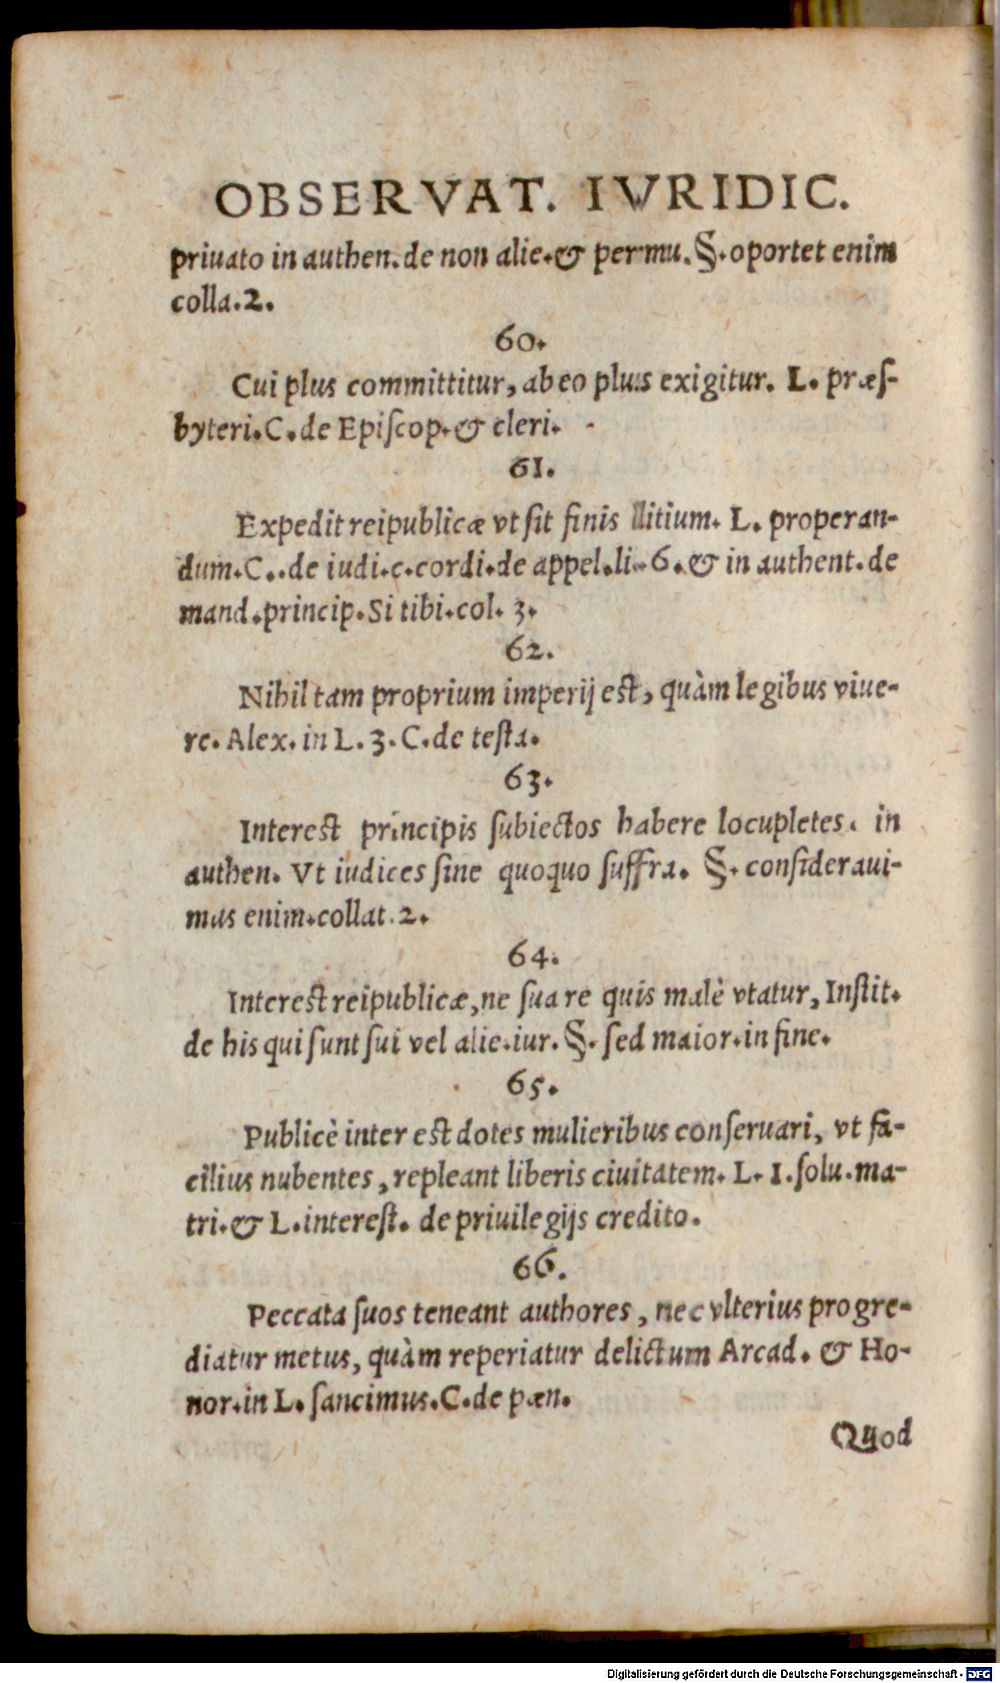 OBSERVAT. IVRIDIC.
priuato in authen. de non alie. & permu. §. oportet enim
colla. 2.
60.
Cui plus committitur, ab eo plus exigitur. L. præſ-
byteri. C. de Epiſcop. & cleri.
61.
Expedit reipublicæ vt ſit finis litium. L. properan-
dum. C.. de iudi. c. cordi. de appel. li. 6. & in authent. de
mand. princip. Si tibi. col. 3.
62.
Nihil tam proprium imperij est, quàm legibus viue-
re. Alex. in L. 3. C. de teſta.
63.
Interest principis ſubiectos habere locupletes. in
authen. Vt iudices ſine quoquo ſuffra. §. conſideraui-
mus enim. collat. 2.
64.
Interest reipublicæ, ne ſua re quis malè vtatur, Inſtit.
de his qui ſunt ſui vel alie. iur. §. ſed maior. in fine.
65.
Publicè interest dotes mulieribus conſeruari, vt fa-
cilius nubentes, repleant liberis ciuitatem. L. 1. ſolu. ma-
tri. & L. intereſt. de priuilegijs credito.
66.
Peccata ſuos teneant authores, nec vlterius progre-
diatur metus, quàm reperiatur delictum Arcad. & Ho-
nor. in L. ſancimus. C. de pœn.
Quod
Digitalisierung gefördert durch die Deutsche Forschungsgemeinschaft - DFG